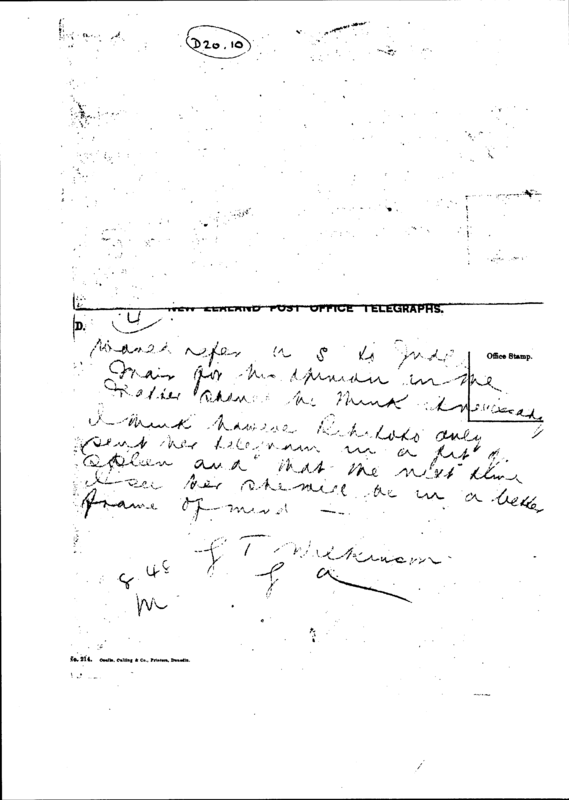 D20.10
NEW ZEALAND POST OFFICE TELEGRAPHS.
D. 4
refer it to Judge
Office Stamp.
Mair for his opinion in the
matter should he think it necessary
I think however only
sent her telegram in a fit of
Spleen and that the next time
I see her she will be in a better
frame of mind —
G T Wilkinson
8 48 G a
M
No. 214. Coulls, Culling & Co., Printers, Dunedin.